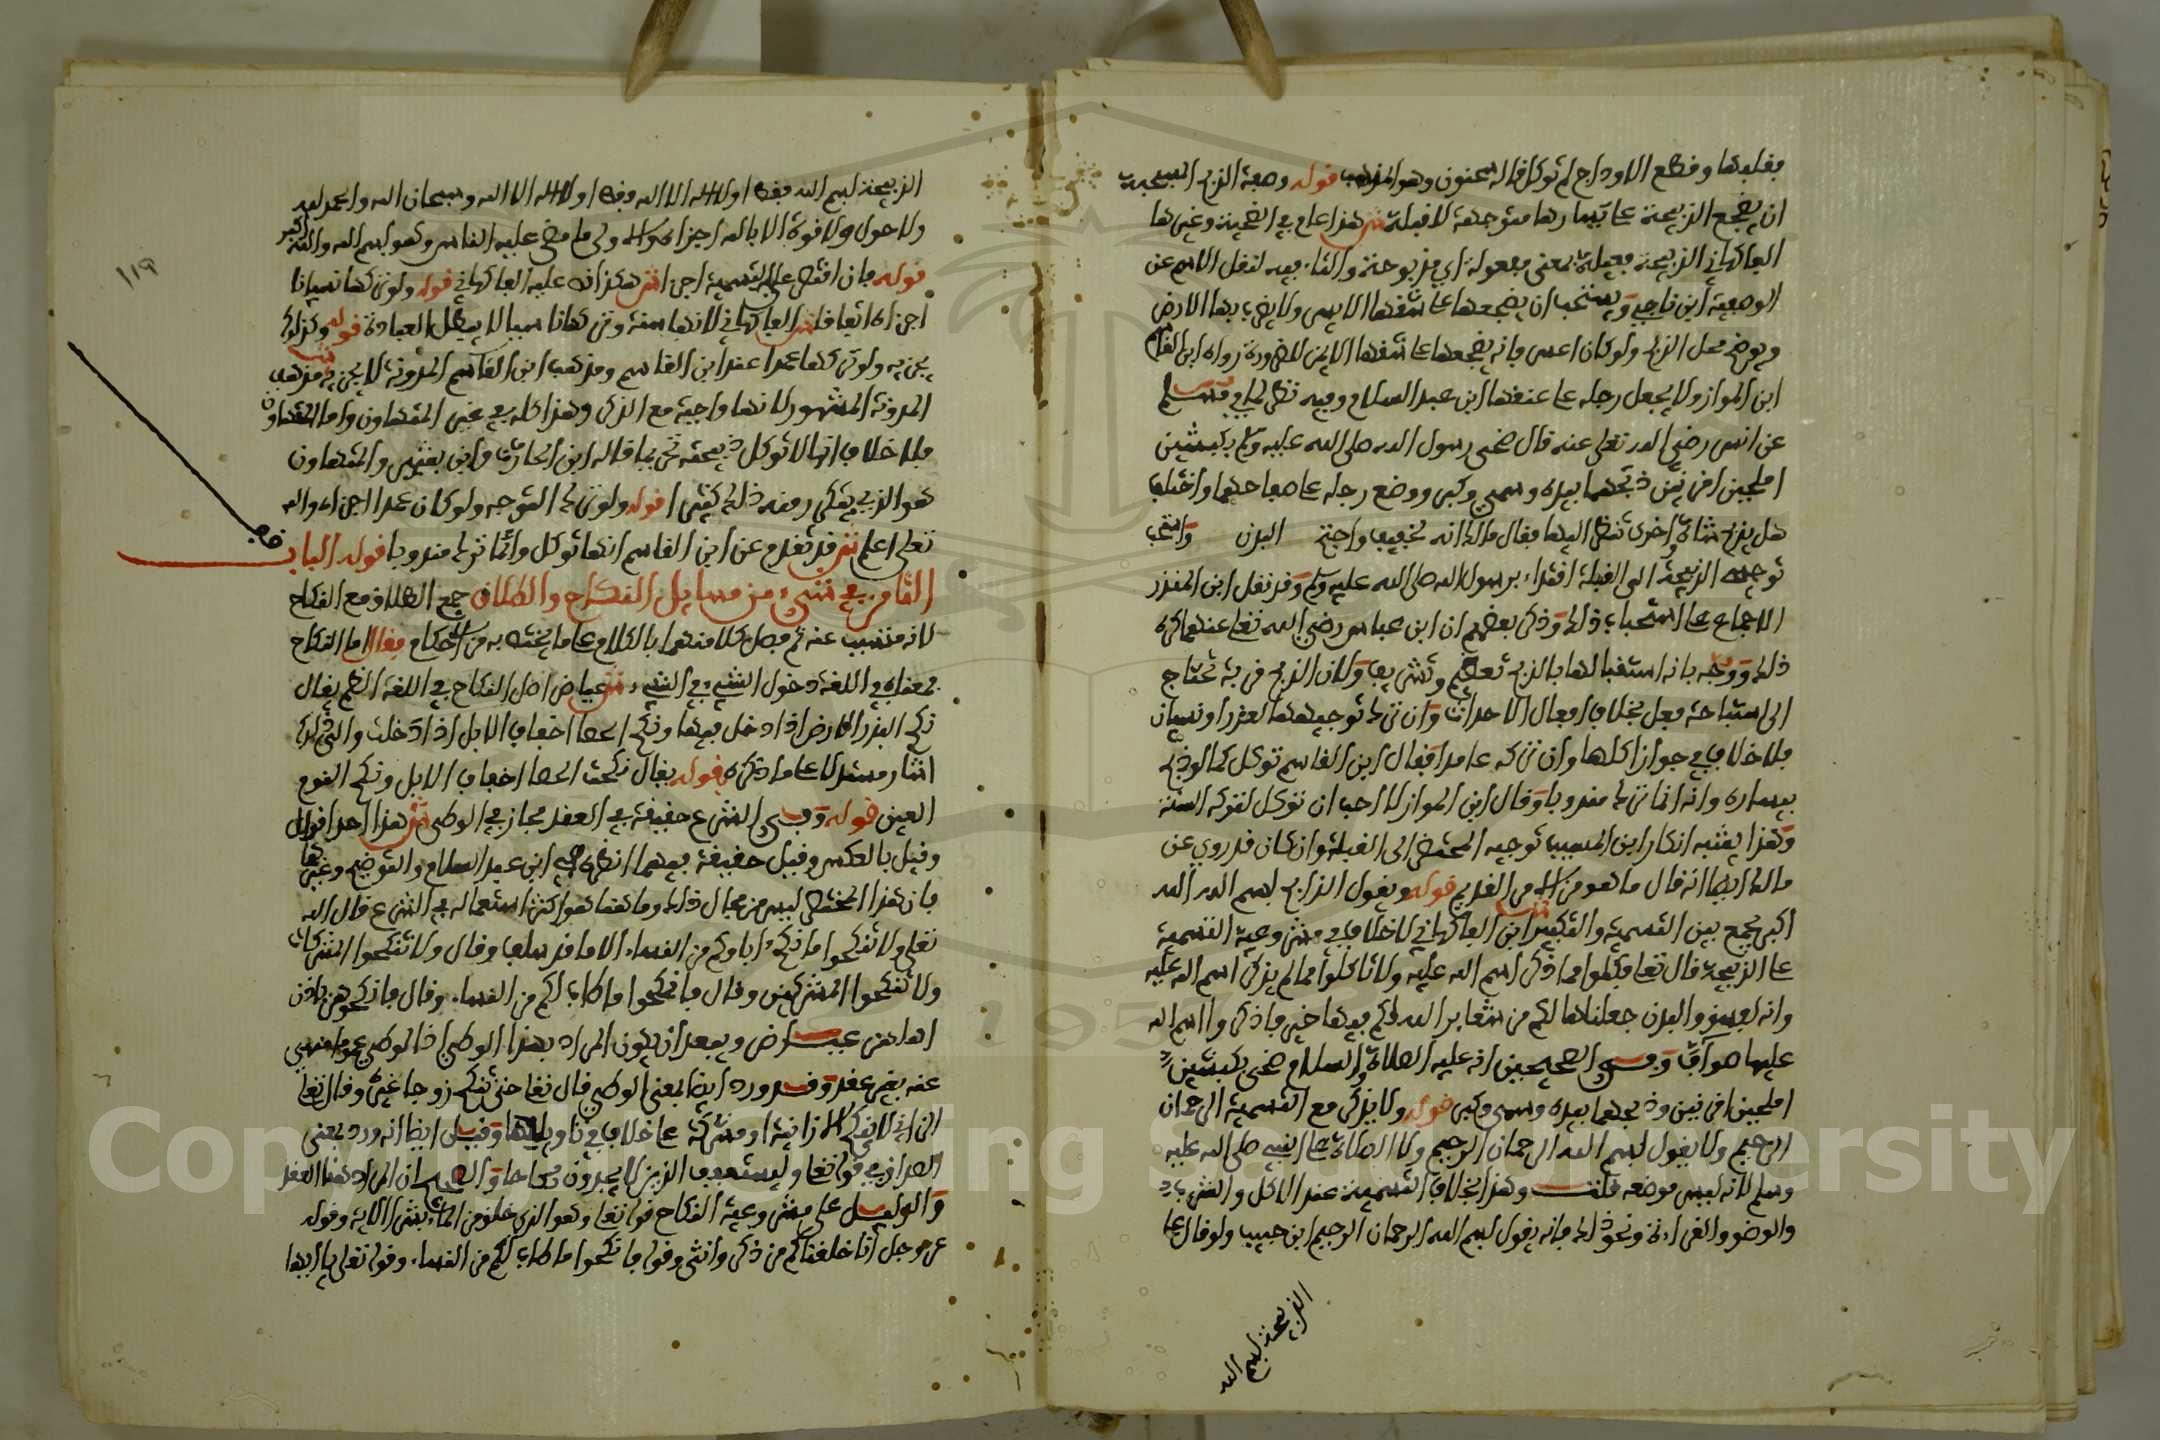 فغلبها وقطع الاوداج لم توكل قاله سحنون وهو المذهب قوله وصفة الذبح المستحبة
ان يضجع الذبيحة على يسارها متوجهة للقبلة ش هذا عام في الضحية وغيرها
الفاكهاني الذبيحة فعيلة بمعنى مفعولة اي مذبوحة والتاء فيه لنقل الاسم عن
الوصفية ابن ناجي ويستحب ان يضجعها على شقها الايسر ولا يضرب بها الارض
ويوضح محل الذبح ولو كان اعسر فانه يضجعها على شقها الايمن للضرورة رواه ابن القاسم
ابن المواز ولا يجعل رجله على عنقها ابن عبد السلام وفيه نظر لما في مسلم
عن انس رضي الله تعالى عنه قال ضحى رسول الله صلى الله عليه وسلم بكبشين
املحين اقرنين ذبحهما بيده وسمى وكبر ووضع رجله على صفاحهما واختلف
هل يذبح شاة واخرى تنظر اليها فقال مالك انه لخفيف واجتـ البدن واستحب
توجيه الذبيحة الى القبلة اقتداء برسول الله صلى الله عليه وسلم وقد نقل ابن المنذر
الاجماع على استحباب ذلك وذكر بعضهم ان ابن عباس رضي الله تعالى عنهما كره
ذلك ووجه بانه استقبالها بالذبح تعظيم وتشريف ولان الذبح قربة تحتاج
الى استباحة فعل بخلاف افعال الاحداث وان ترك توجيهها لعذر او نسيان
فلا خلاف في جواز اكلها وان تركه عامدا فقال ابن القاسم توكل كما لو ذبح
بيساره وانه انما ترك مندوبا وقال ابن المواز لا احب ان توكل لتركه السنة
وهذا يشبه انكار ابن المسيب توجيه المحتضر الى القبلة وان كان قد روي عن
مالك ايضا انه قال ما هو من الامر القديم قوله ويقول الذابح بسم الله والله
اكبر يجمع بين التسمية والتكبير ش الفاكهاني لا خلاف في مشروعية التسمية
على الذبيحة قال تعالى فكلوا مما ذكر اسم الله عليه ولا تاكلوا مما لم يذكر اسم الله عليه
وانه لفسق والبدن جعلناها لكم من شعاير الله لكم فيها خير فاذكروا اسم الله
عليها صواف وفي الصحيحين انه عليه الصلاة والسلام ضحى بكبشين
املحين اقرنين وذبحهما بيده وسمى وكبر قوله ولا يذكر مع التسمية الرحمان
الرحيم ولا يقول بسم الله الرحمان الرحيم ولا الصلاة على النبي صلى الله عليه
وسلم لانه ليس موضعه قلت وهذا بخلاف التسمية عند الاكل والشرب
والوضو والقراءة ونحو ذلك فانه يقول بسم الله الرحمان الرحيم ابن حبيب ولو قال على
الذبيحة بسم الله
الذبيحة بسم الله فقط او لا اله الا الله فقط او لا اله الا الله وسبحان الله والحمد لله
ولا حول ولا قوة الا بالله اجزا ولكن ما مضى عليه الناس وهو بسم الله والله اكبر
١١٩
قوله فان اقتصر على التسمية اجزا ش هكذا نص عليه الفاكهاني قوله ولو تركها نسيانا
اجزاه اتفاقا ش الفاكهاني لانها سنة وتركها ناسيا لا يبطل العبادة قوله وكذلك
يجزيه ولو تركها عمدا عند ابن القاسم ومذهب ابن القاسم المدونة لا يجزيه ش مذهب
المدونة المشهور لانها واجبة مع الذكر وهذا كله في غير المتهاون واما المتهاون
فلا خلاف انها لا توكل ذبيحته تحريما قاله ابن الحارث وابن بشير والمتهاون
هو الذي يتكرر منه ذلك كثيرا قوله ولو ترك التوجه ولو كان عمدا اجزاه والله
تعالى اعلم ش قد تقدم عن ابن القاسم انها توكل وانما ترك مندوبا قوله الباب
قف
الثامن في شيء من مسايل النكاح والطلاق جمع الطلاق مع النكاح
لانه متسبب عنه ثم فصل كلا منهما بالكلام على ما يختص به من الاحكام فقال اما النكاح
فمعناه في اللغة دخول الشيء في الشيء ش عياض اصل النكاح في اللغة الضم يقال
نكح البذر الارض اذا دخل فيها ونكح الحصا اخفاف الابل اذا دخلت والى ذلك
اشار مستدلا على ما ذكره بقوله يقال نكحت الحصا اخفاف الابل ونكح النوم
العين قوله وفي الشرع حقيقة في العقد مجاز في الوطي ش هذا احد اقوال
وقيل بالعكس وقيل حقيقة فيهما انظره في ابن عبد السلام والتوضيح وغيرهما
فان هذا المختصر ليس من مجال ذلك وما هنا هو اكثر استعماله في الشرع قال الله
تعالى ولا تنكحوا ما نكح اباؤكم من النساء الا ما قد سلف وقال ولا تنكحوا المشركات
ولا تنكحوا المشركين وقال فانكحوا ما طاب لكم من النساء وقال فانكحوهن باذن
اهلهن عياض ويبعد ان يكون المراد بهذا الوطي اذ الوطي ممنوع منهي
عنه بغير عقد وقد ورد ايضا بمعنى الوطي قال تعالى حتى تنكح زوجا غيره وقال تعالى
الزاني لا ينكح الا زانية او مشركة على خلاف في تاويلها وقيل ايضا انه ورد بمعنى
الصداق في قوله تعالى وليستعفف الذين لا يجدون نكاحا والصحيح ان المراد هنا العقد
والدليل على مشروعية النكاح قوله تعالى وهو الذي خلق من الماء بشرا الاية وقوله
عز وجل انا خلقناكم من ذكر وانثى وقوله فانكحوا ما طاب لكم من النساء وقوله تعالى يا ايها
Copyright © King Saud University
1957